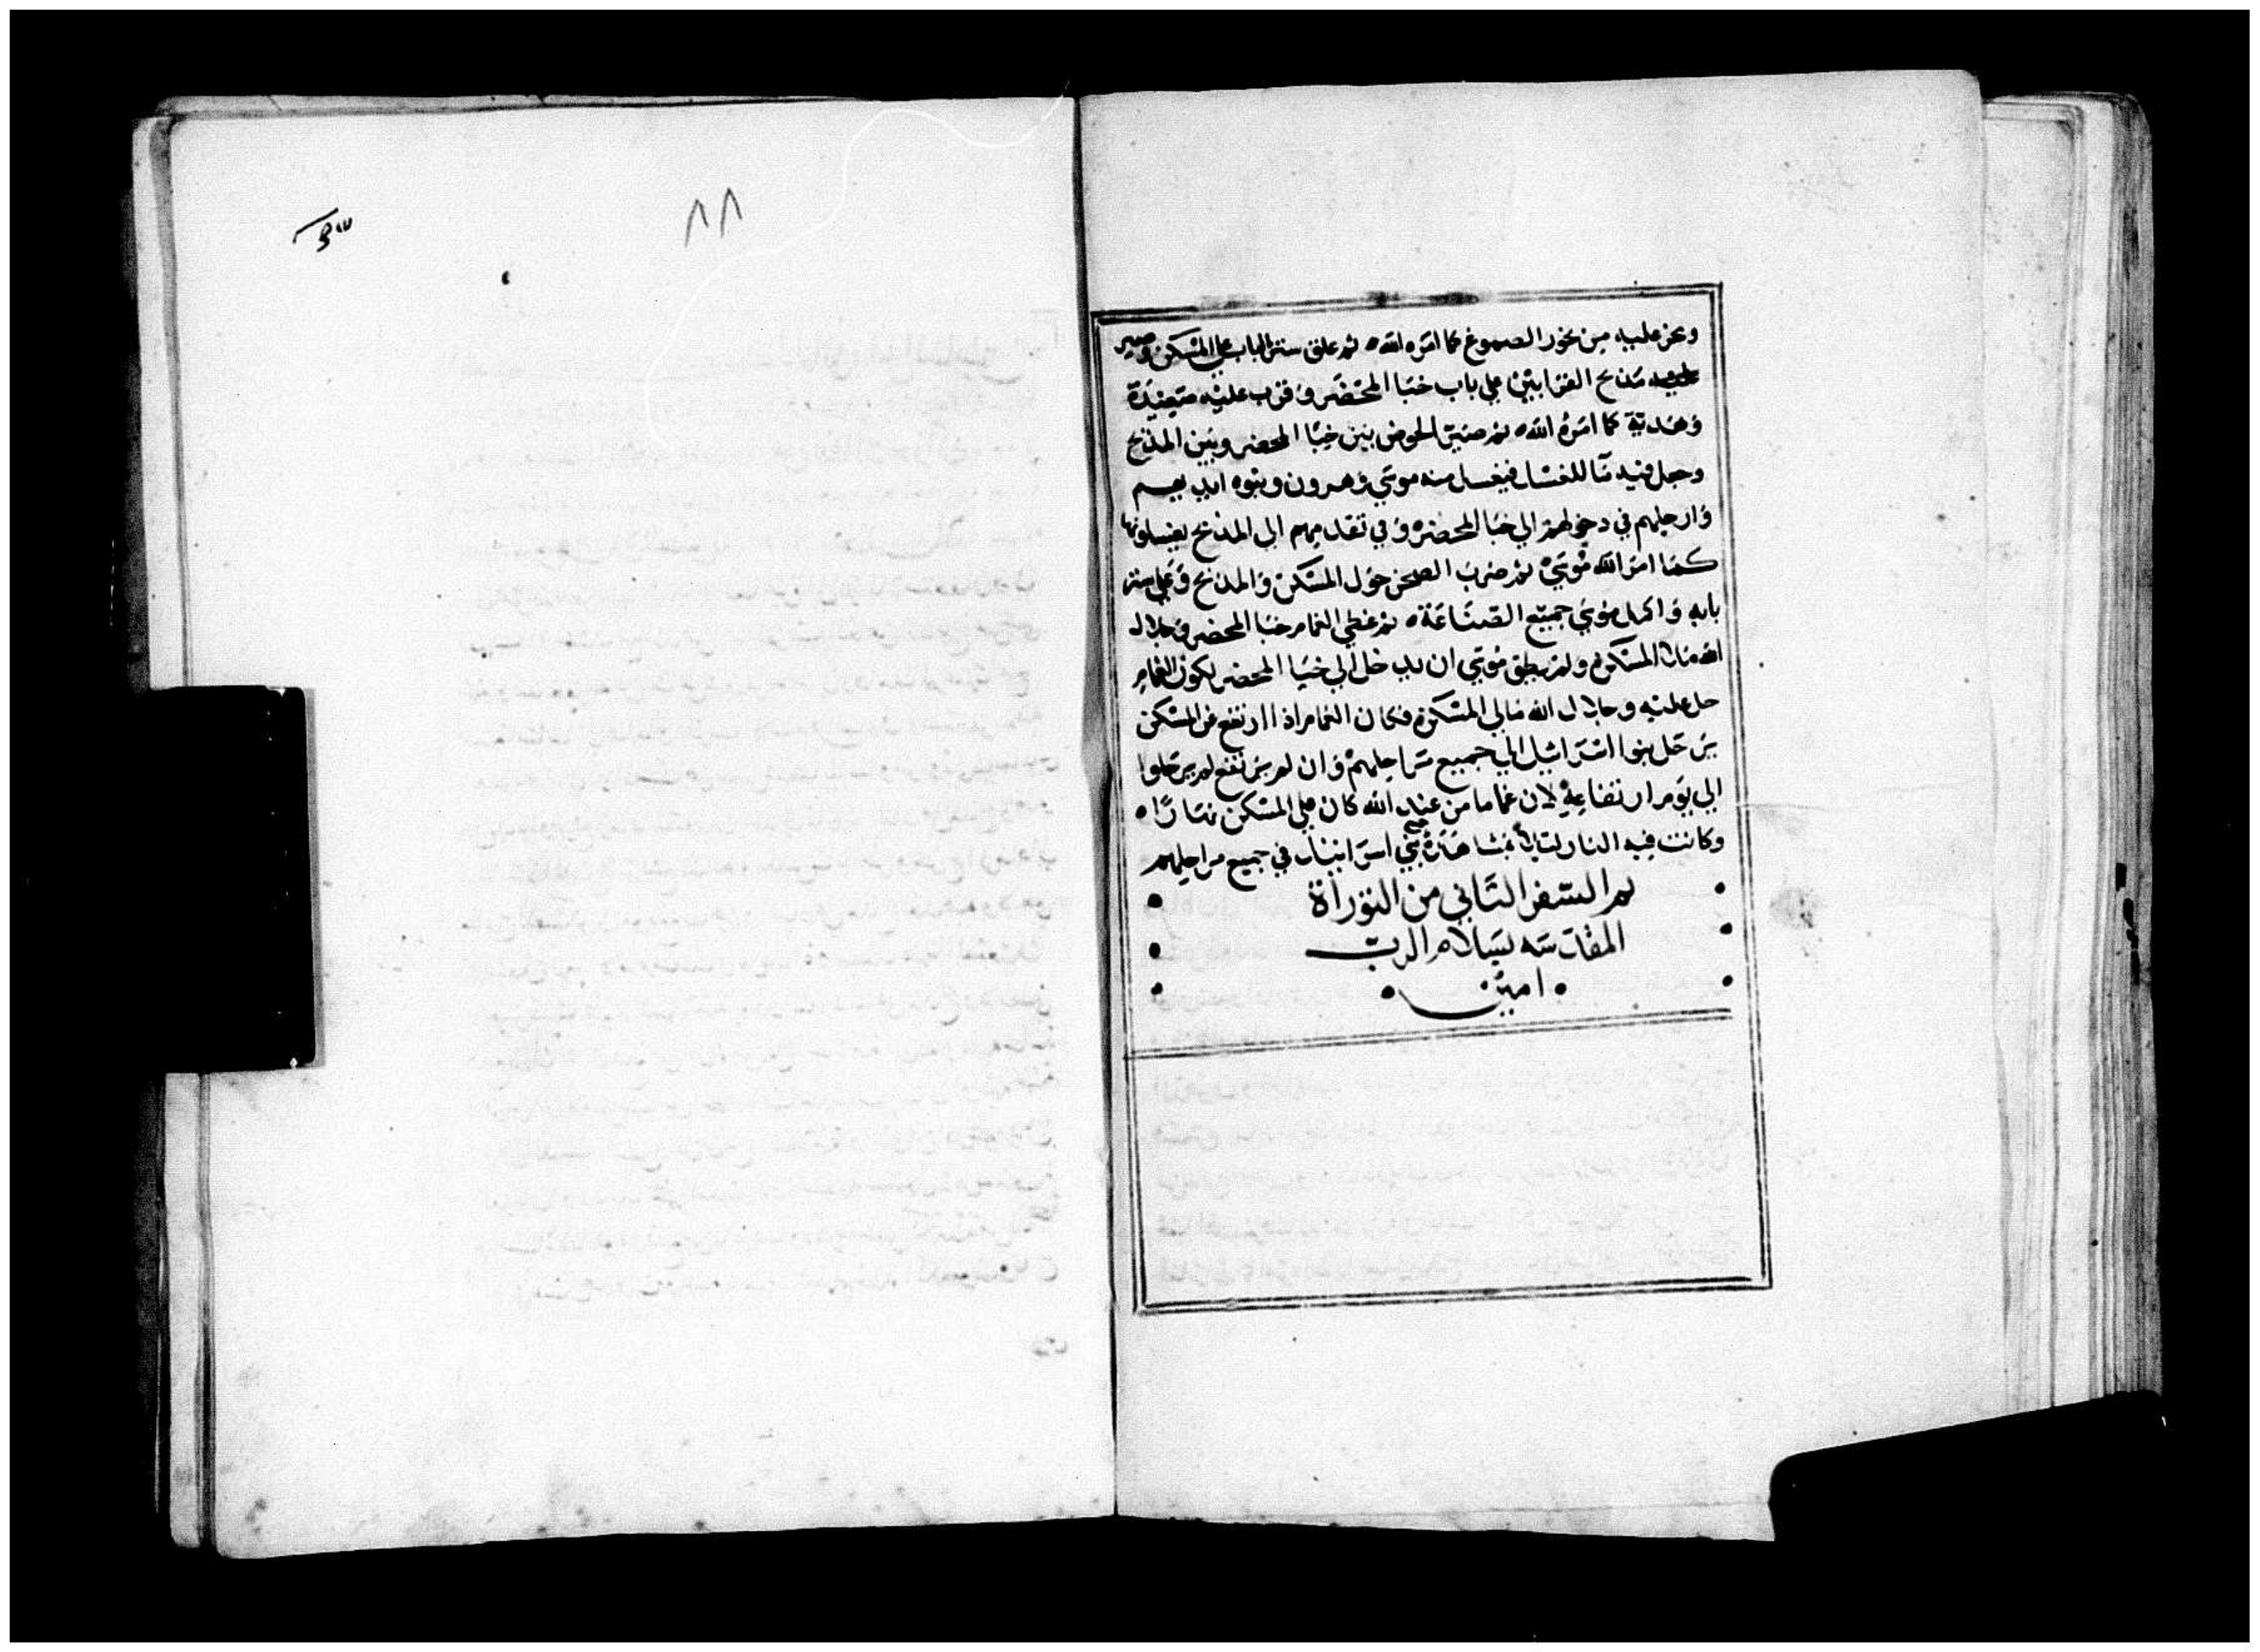 وبخر عليه من بخور الصموغ كما امره الله ثم علق ستر الباب علي المسكن وصير
مذبح القرابين علي باب خبا المحضر وقرب عليه صعيدة
وهدية كما امره الله ثم صير الحوض بين خبا المحضر وبين المذبح
وجعل فيه مآ للغسل فيغسل منه موسي وهرون وبنوه ايديهم
وارجلهم في دخولهم الي خبا المحضر وفي تقديمهم الي المذبح يغسلونها
كما امر الله موسي ثم ضرب الصحن حول المسكن والمذبح وعلي ستر
بابه واكمل موسي جميع الصناعة ثم غطي الغمام خبا المحضر وجلال
الله مالا المسكن ولم يطق موسي ان يدخل الي خبا المحضر لكون الغمام
حل عليه وجلال الله مالي المسكن فكان الغمام اذا ارتفع عن المسكن
يرحل بنوا اسرائيل الي جميع مراحلهم وان لم يرتفع لم يرحلوا
الي يوم ارتفاعه لان غماما من عند الله كان علي المسكن نهارا
وكانت فيه النار ليلا بمشاهدة بني اسراييل في جميع مراحلهم
تم السفر الثاني من التوراة
المقدسه بسلام الرب
امين
٨٨